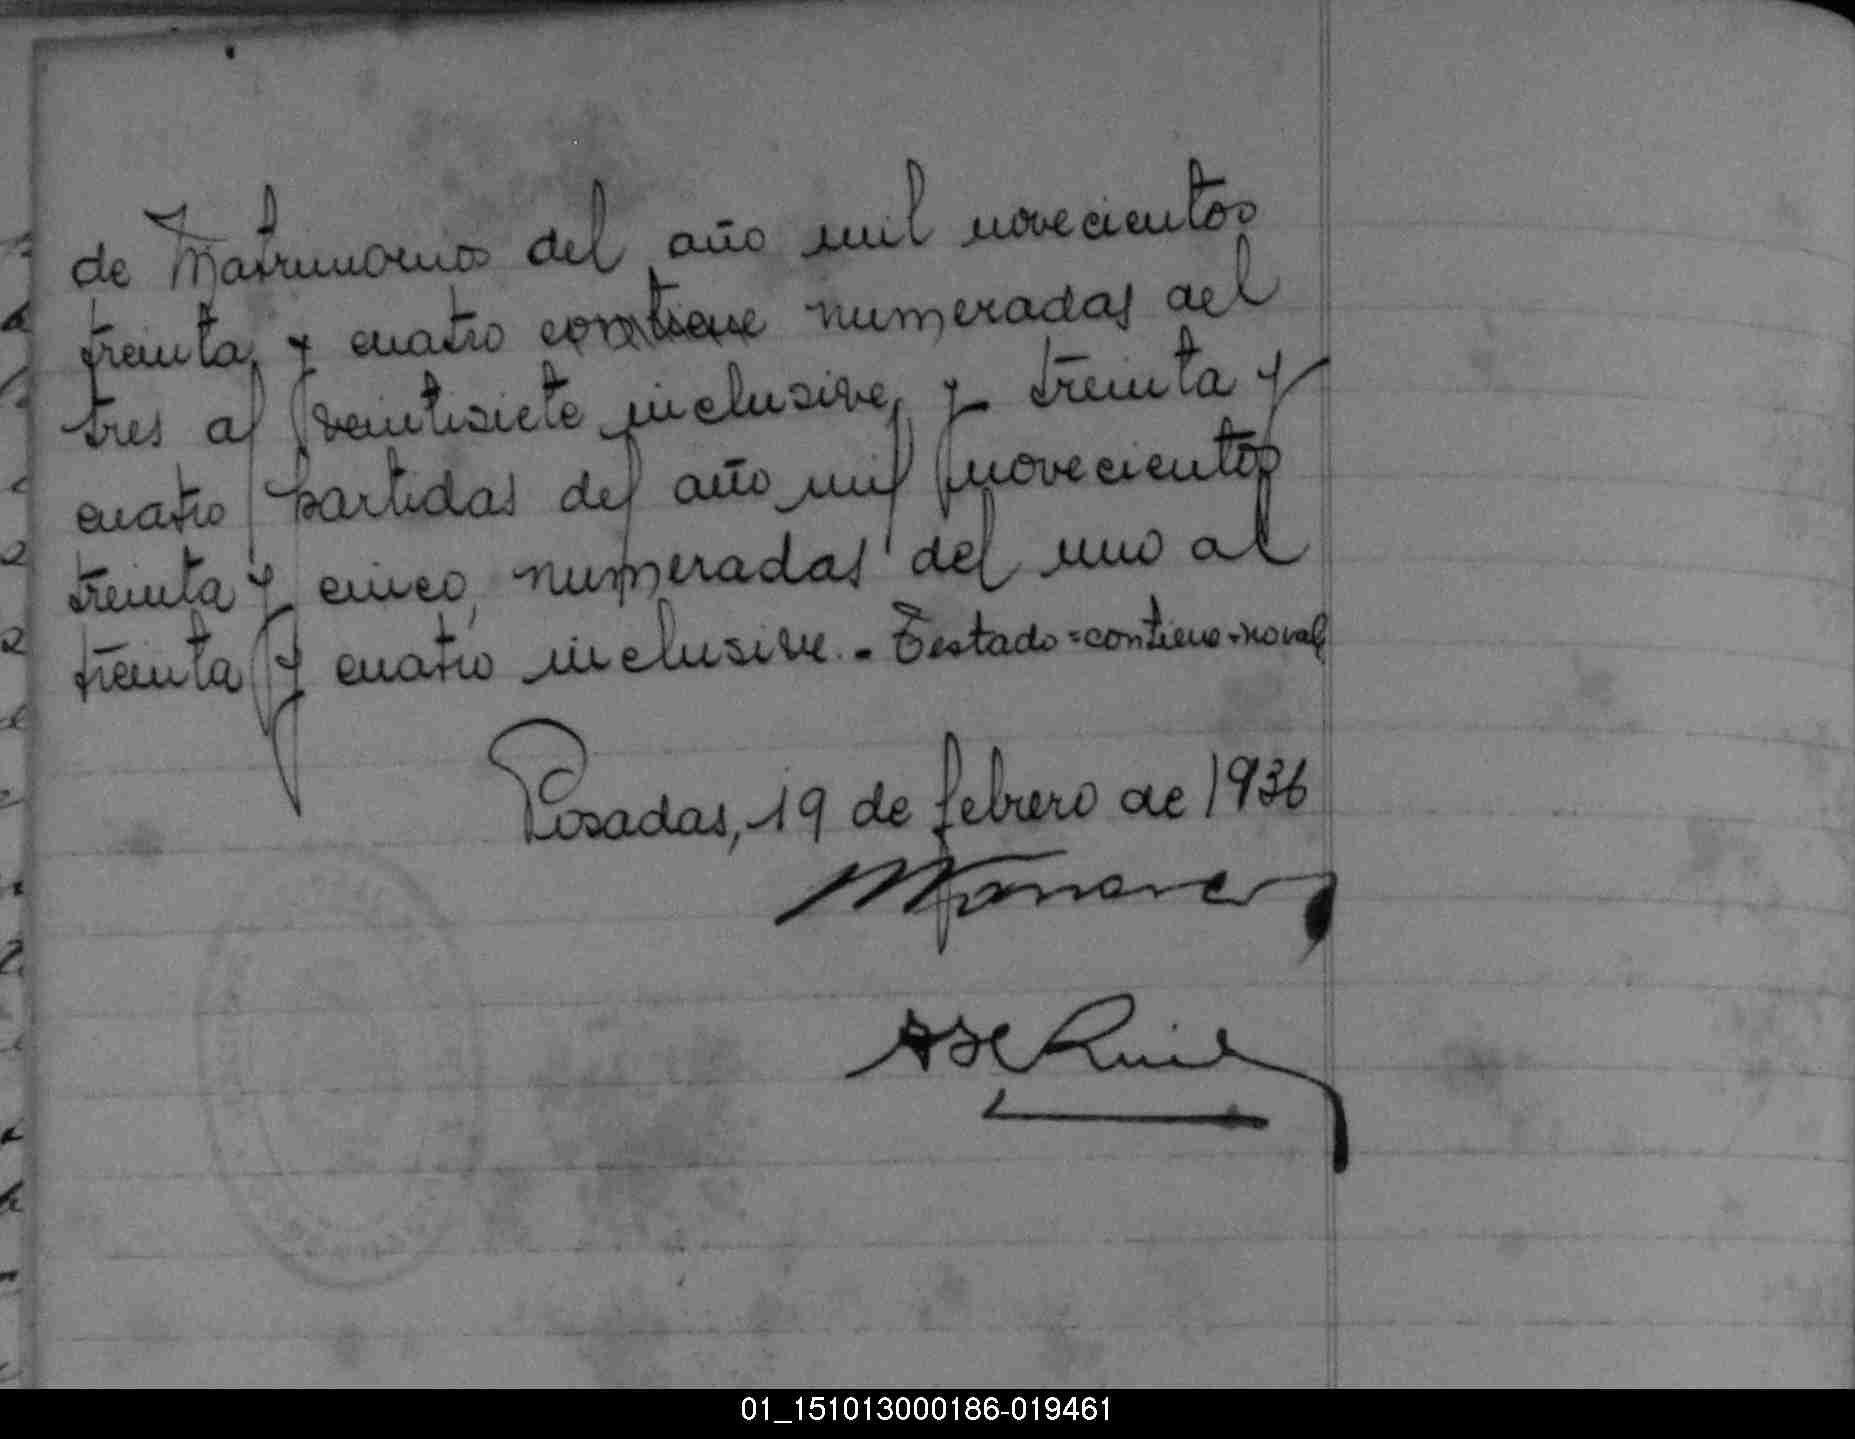 de Matrimonios del año mil novecientos
treinta y cuatro contiene numeradas del
tres al veintisiete inclusive, y treinta y
cuatro partidas del año mil novecientos
treinta y cinco, numeradas del uno al
treinta y cuatro inclusive. - Testado=contiene=no vale
Posadas, 19 de febrero de 1936
Ruiz
01_151013000186-019461